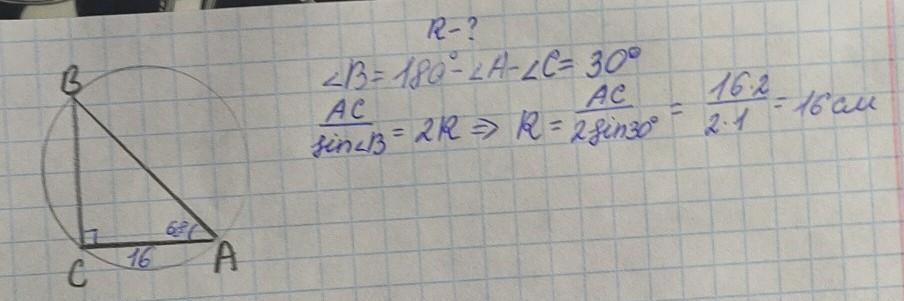 R-?
∠B = 180° - ∠A - ∠C = 30°
AC/sin∠B = 2R ⇒ R = AC/2sin30° = 16·2/2·1 = 16 см
B
C
16
A